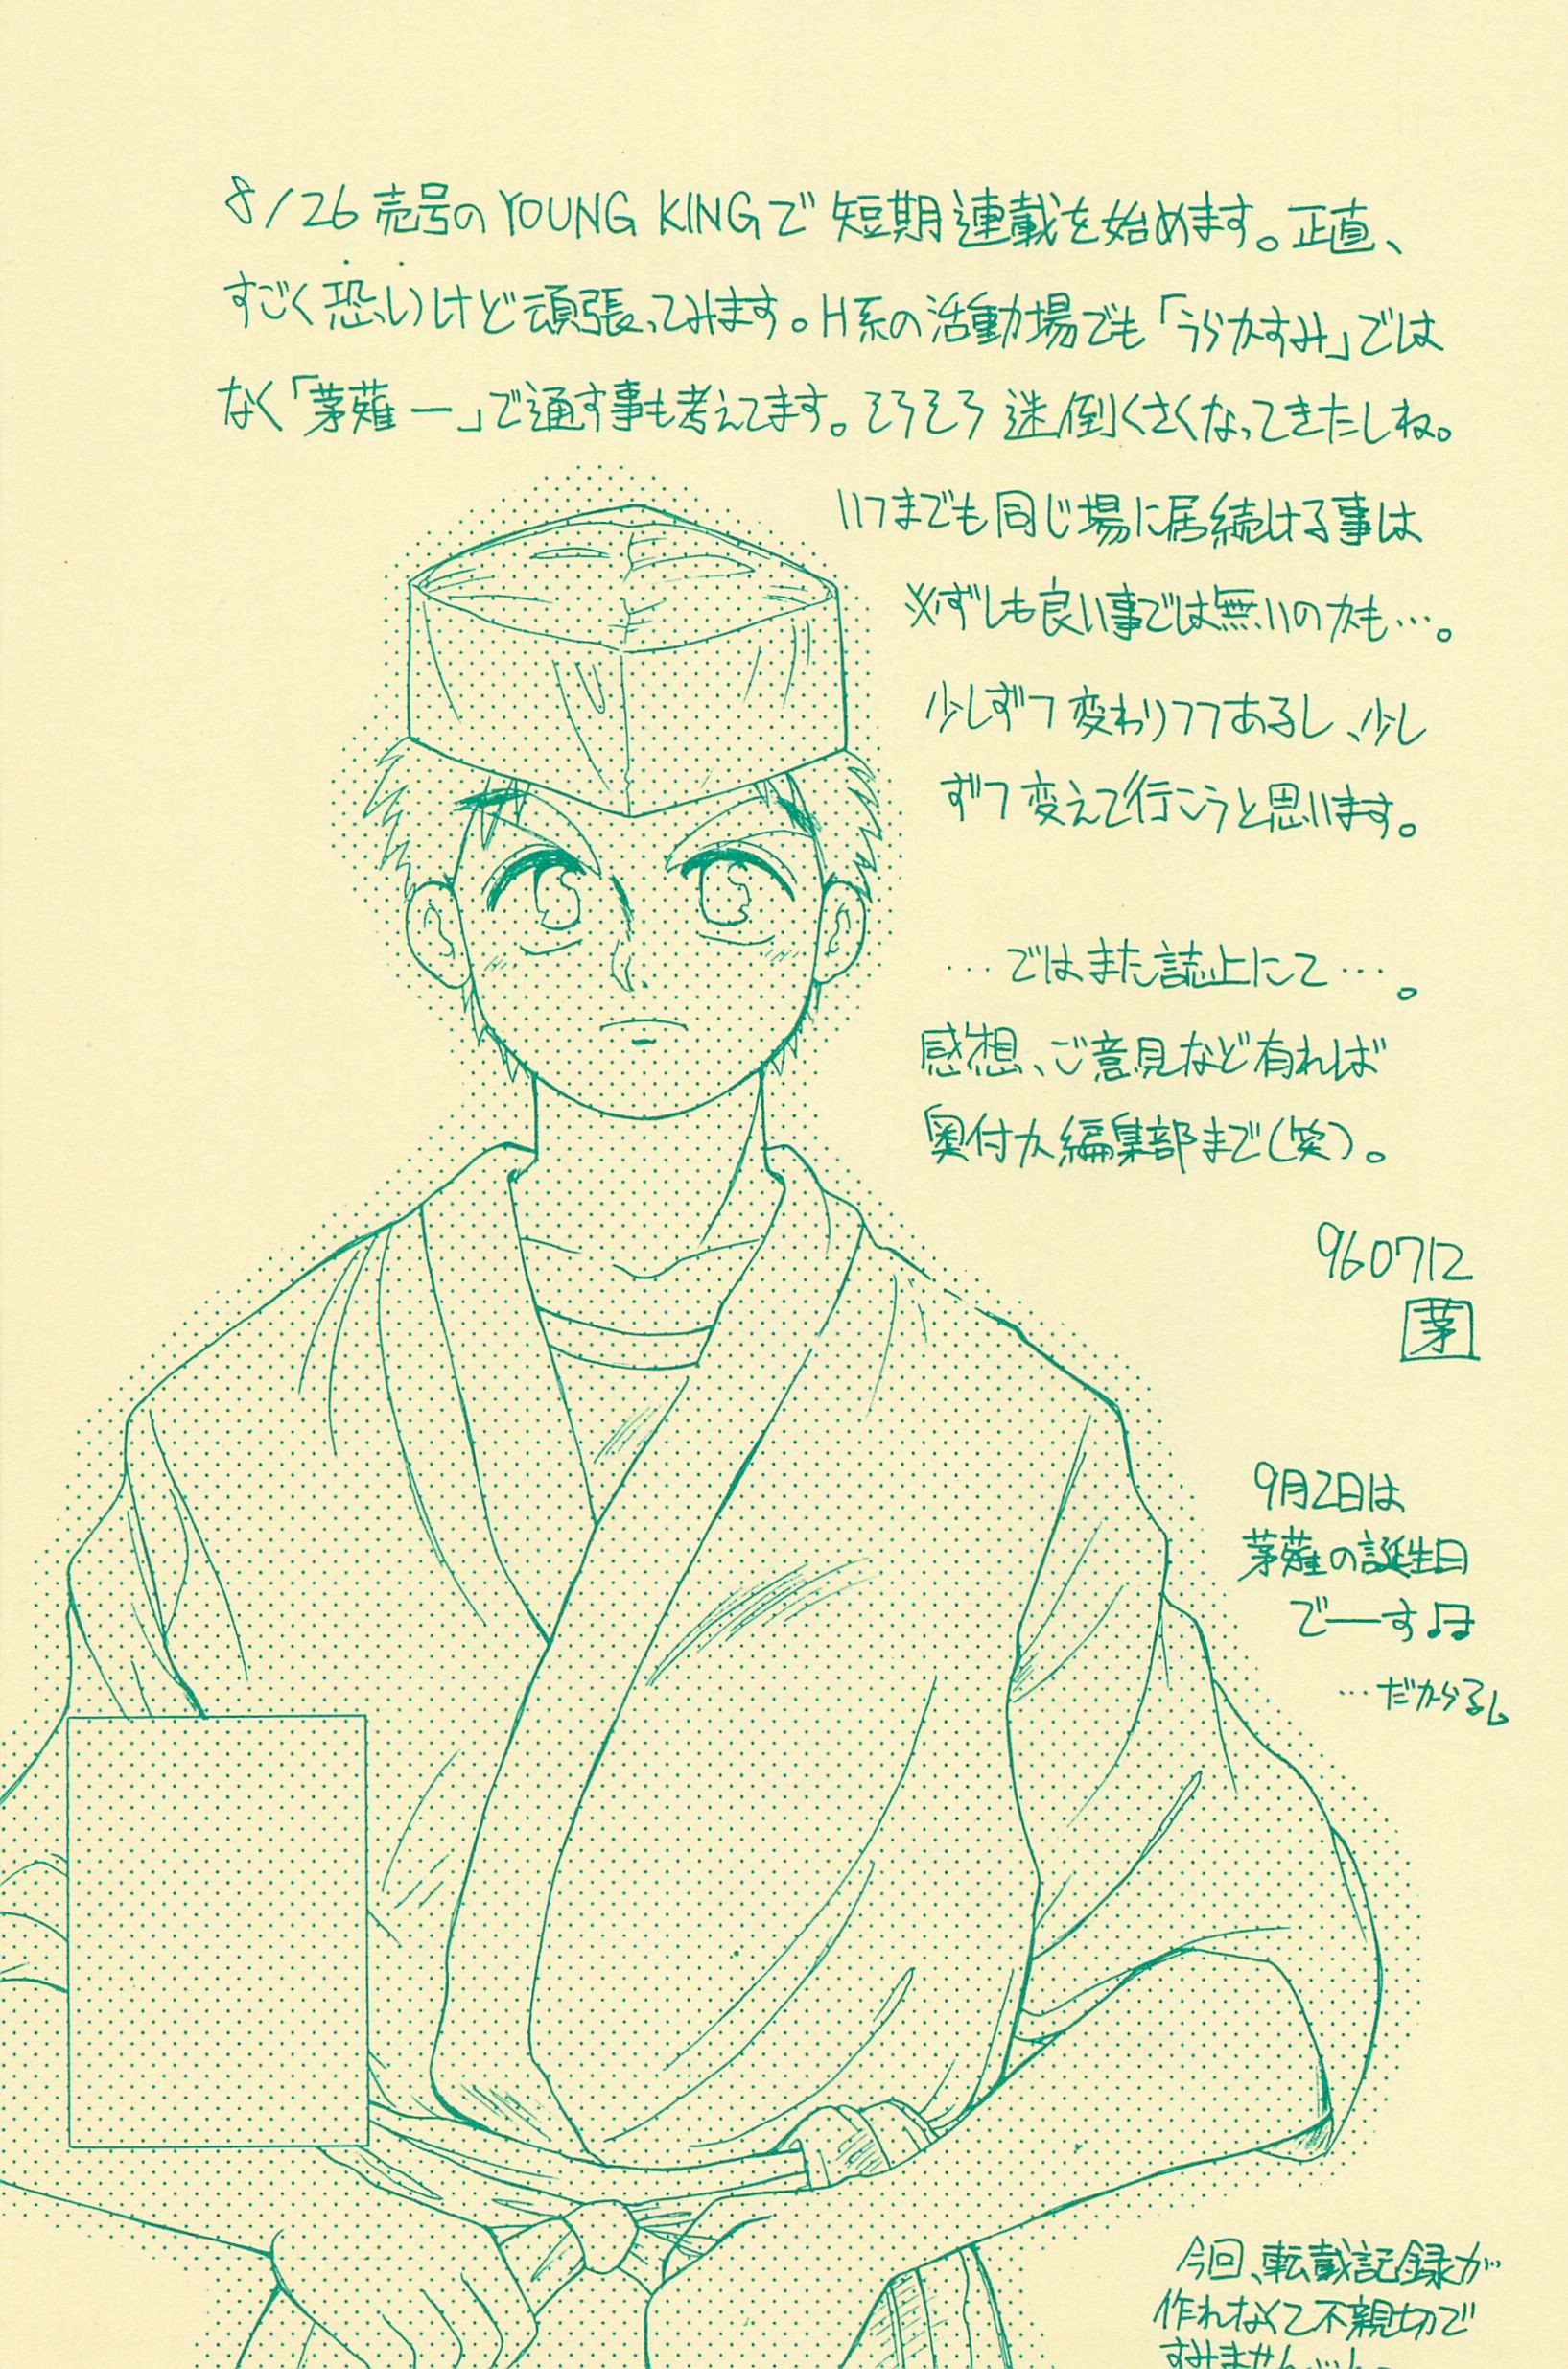 8/26売号のYOUNG KINGで短期連載を始めます。正直、
すごく恐いけど頑張ってみます。H系の活動場でも「うらかすみ」では
なく「茅薙一」で通す事も考えてます。そろそろ迷倒くさくなってきたしね。
いつまでも同じ場に居続ける事は
必ずしも良い事では無いのかも…。
少しずつ変わりつつあるし、少し
ずつ変えて行こうと思います。
…ではまた誌上にて…。
感想、ご意見など有れば
奥付カ編集部まで(笑)。
960712
茅
9月2日は
茅薙の誕生日
でーす♫
…だからるし
今回、転載記録が
作れなくて不親切で
すみません